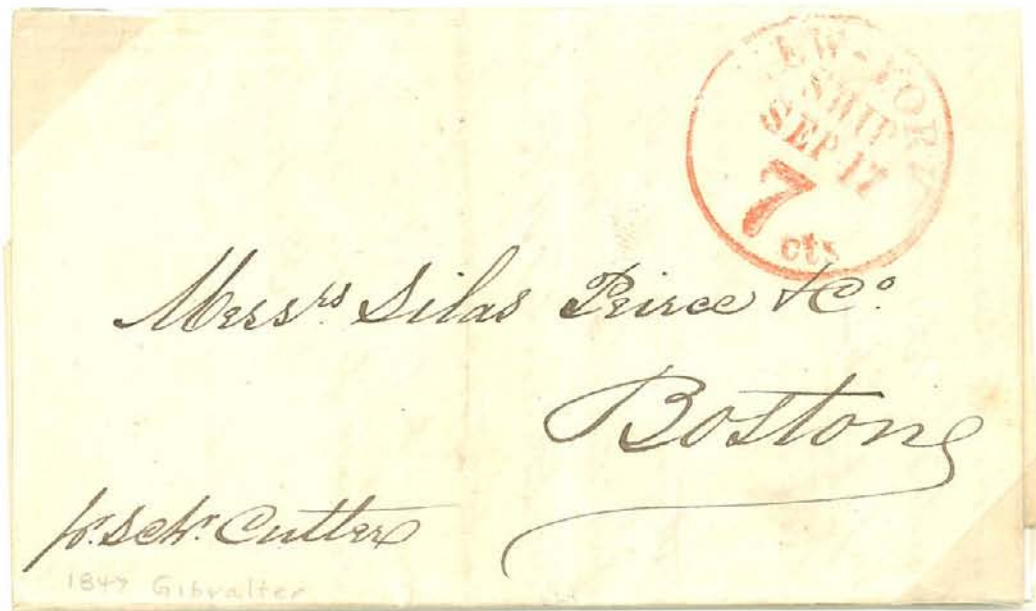 NEW-YORK
SHIP
SEP 17
7
cts
Messrs Silas Peirce & Co.
Boston
pr. Schr. Cutter
1847 Gibralter